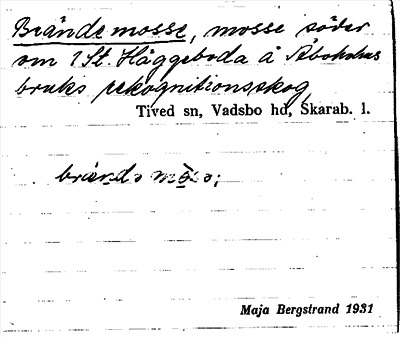 Brände mosse, mosse söder
om 1 St. Häggeboda å Åboholms
bruks rekognitionsskog
Tived sn, Vadsbo hd, Skarab. l.
brände måsa;
Maja Bergstrand 1931